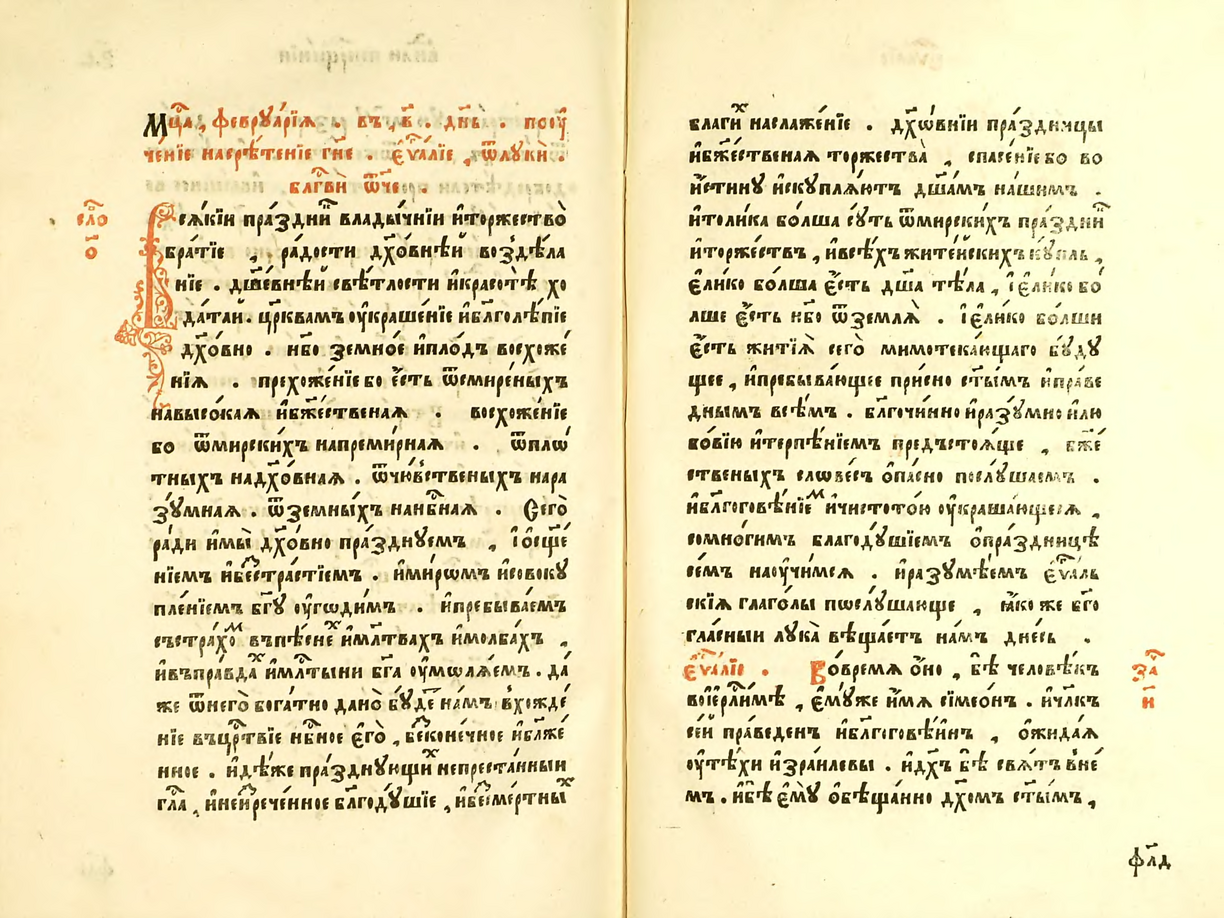 Мц҃а, февруа́рїѧ . въ, в҃ . дн҃ь . поꙋ҆
че́нїе насрѣ́тенїе гн҃е . є҆ѵⷢ҇алїе, ѿлꙋкѝ .
блг҃вѝ ѿч҃е .
сло
о҃
Всѧ́кїи пра́здниⷦ҇ влады́чнїи и҆торжество̀
бра́тїе , ра́дости дх҃о́внѣй возд́ѣла
нїе . дш҃е́внѣй свѣ́тлости и҆красотѣ̀ хо
да́тай. цр҃квамъ оу҆краше́нїе и҆бл҃голѣ́пїе
дх҃о́вно . и҆́бо земно́е и҆пло́дъ восхоже́
нїѧ . прехоже́нїебо є҆́сть ѿсмире́ныхъ
навысо́каѧ и҆бж҃е́ственаѧ . восхоже́нїе
бо ѿмирски́хъ напреми́рнаѧ . ѿплѡ́
тныхъ надх҃о́внаѧ . ѿчю́вственыхъ нара
зꙋ́мнаѧ . ѿземны́хъ нанбⷭ҇наѧ . Сего̀
ра́ди и҆мы̀ дх҃о́вно пра́зднꙋемъ , і҆ѻ҆сщ҃е́
нїемъ и҆безстра́стїемъ . и҆ми́ромъ и҆совокꙋ
пле́нїемъ бг҃ꙋ оу҆годи́мъ . и҆пребыва́емъ
сⸯстра́хоⷨ въпѣ́сенеⷯ и҆мл҃твахъ и҆молба́хъ ,
и҆въпра́вдаⷯ и҆млⷭ҇тыни бг҃а оу҆мѡлѧ́емъ . да́
же ѿнего̀ бога́тно дано̀ бꙋ́де на́мъ вхожде́
нїе въцрⷭ҇твїе нбⷭ҇ное є҆го̀, безконе́чное и҆бл҃же́
нное . и҆дѣ́же пра́зднꙋющиⷯ непреста́нныи
гла́, и҆неизрече́нное благодꙋ́шїе , и҆безсме́ртныⷯ
благи́ⷯ наслаже́нїе . дх҃о́внїи пра́здницы
и҆бж҃е́ственаѧ торжества̀ , спасе́нїебо во
и҆́стинꙋ и҆скꙋплѧ́ютъ дш҃а́мъ на́шимъ .
и҆толи́ка бо́лша сꙋ́ть ѿмирски́хъ пра́здниⷦ҇
и҆торже́ствъ, и҆всѣ́хъ жите́йскихъ кꙋ́пль ,
є҆ли́ко бо́лша є҆́сть дш҃а тѣ́ла , і҆є҆ли́ко бо
лше є҆́сть нб҃о ѿземлѧ̀ . і҆є҆ли́ко бо́лши
є҆́сть житїѧ̀ сего̀ мимотека́ющаго бꙋ́дꙋ
щее, и҆пребыва́ющее при́сно ст҃ы́мъ и҆пра́ве
днымъ всѣ́мъ . бл҃гочи́нно и҆разꙋ́мно и҆лю
бо́вїю и҆терпѣ́нїемъ предъстоѧ́ще , бж҃е́
ственыхъ слове́съ ѻ҆па́сно послꙋ́шаемъ .
и҆бл҃гоговѣ́нїеⷨ и҆чистото́ю оу҆краша́ющесѧ ,
сомно́гимъ благодꙋ́шїемъ ѻ҆пра́здницѣ
се́мъ наꙋчи́мсѧ . и҆разꙋмѣ́емъ є҆ѵⷢ҇аль
скїѧ глаго́лы послꙋ́шающе , ꙗ҆́ко же бг҃о
гла́сныи лꙋка̀ вѣща́етъ на́мъ дне́сь .
є҆ѵⷢ҇алїе . Вовре́мѧ ѻ҆́но , бѣ̀ человѣ́къ
воі҆ерⷭ҇ли́мѣ , є҆мꙋ́же и҆́мѧ сїмео́нъ . и҆чл҃къ
се́й пра́веденъ и҆бл҃гоговѣ́инъ , ѻ҆жида́ѧ
оу҆тѣ́хи и҆зра́илевы . и҆дх҃ъ бѣ̀ свѧ́тъ вне́
мъ . и҆бѣ̀ є҆мꙋ̀ ѻ҆бѣща́нно дх҃омъ ст҃ы́мъ ,
заⷱ҇
и҃
фл҃д